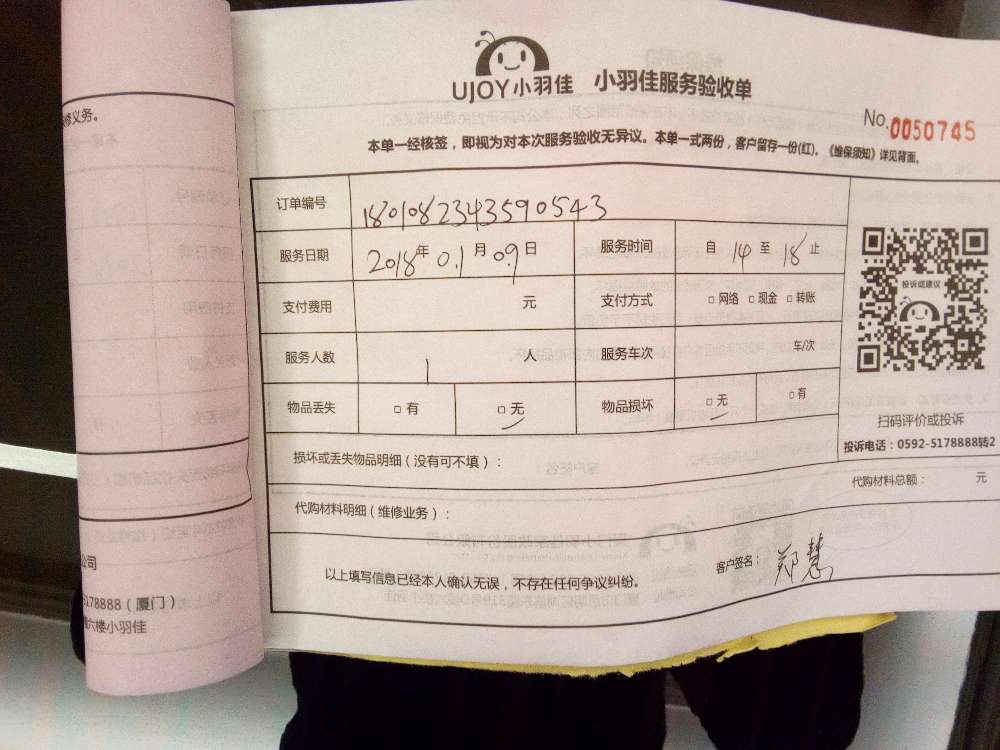 UJOY小羽佳 小羽佳服务验收单
No.0050745
本单一经核签，即视为对本次服务验收无异议。本单一式两份，客户留存一份(红)。《维保须知》详见背面。
订单编号 1801082343590543
服务日期 2018年01月09日 服务时间 自14至18止
支付费用 元 支付方式 □网络 □现金 □转账
服务人数 1人 服务车次 车/次
物品丢失 □有 □无 物品损坏 □无 □有
投诉或建议
扫码评价或投诉
投诉电话：0592-5178888转2
损坏或丢失物品明细（没有可不填）：
代购材料明细（维修业务）： 代购材料总额： 元
以上填写信息已经本人确认无误，不存在任何争议纠纷。 客户签名：郑慧
修义务。
公司
5178888（厦门）
六楼小羽佳